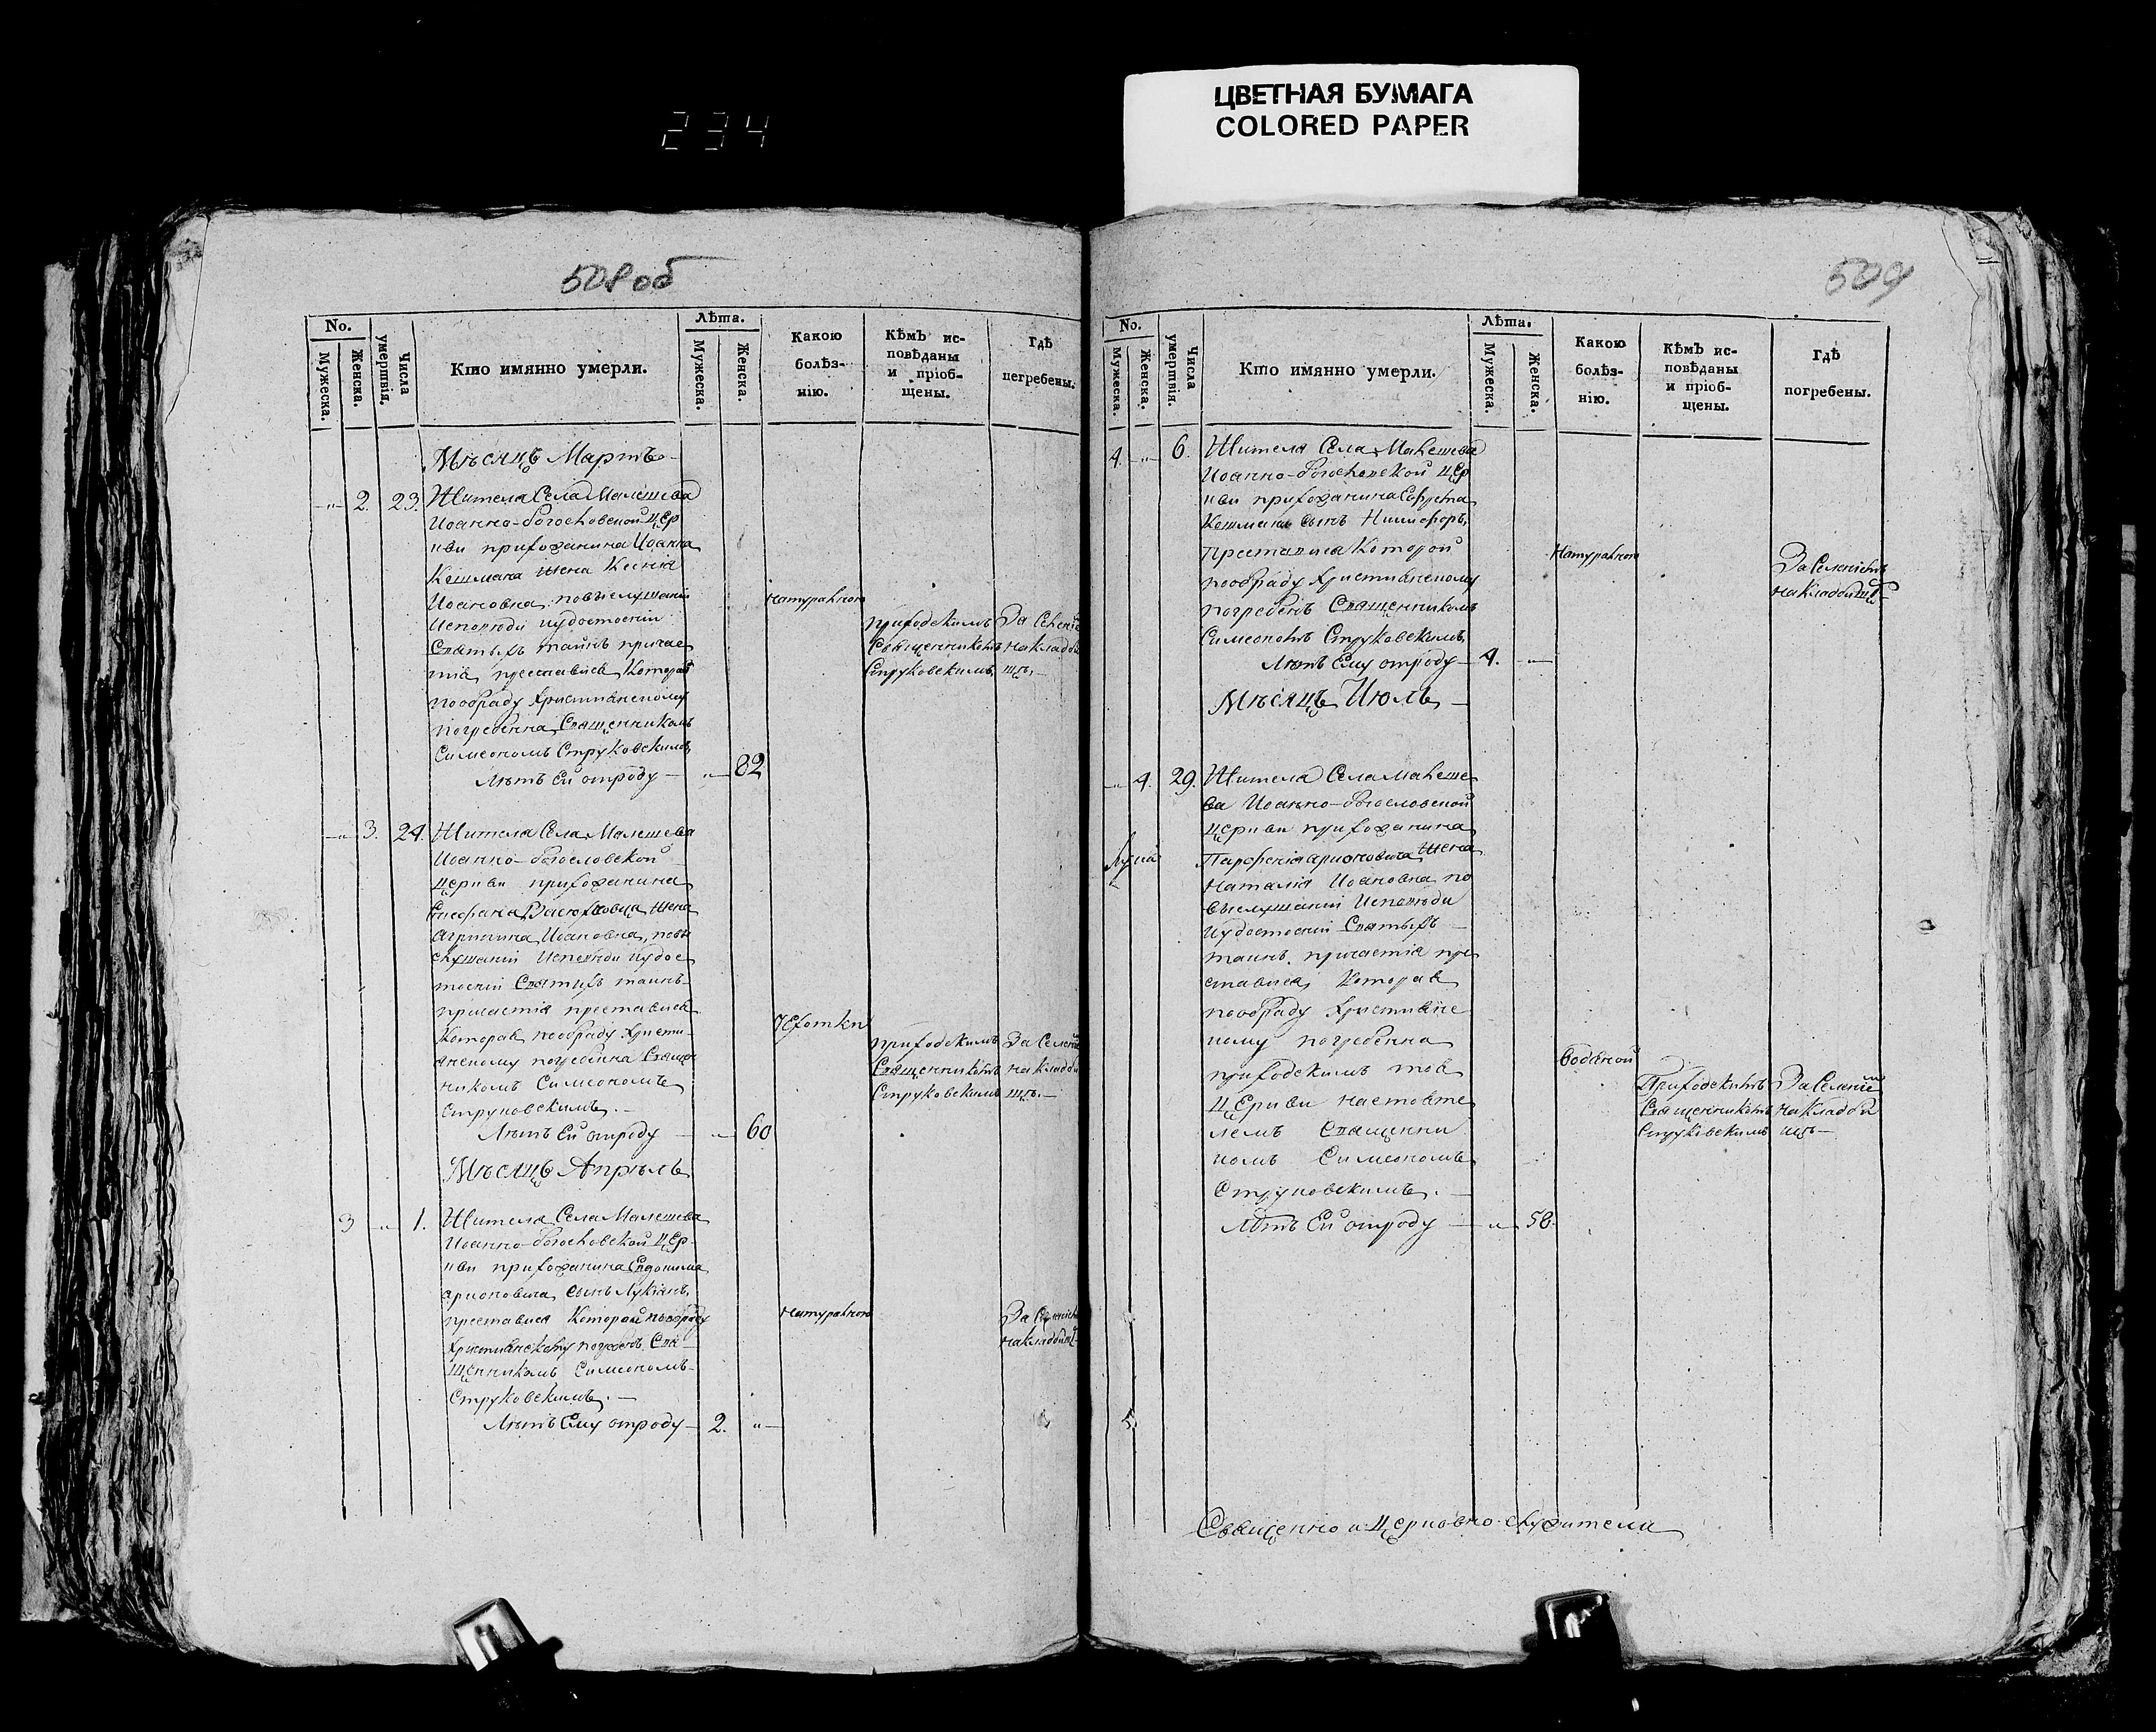 ЦВЕТНАЯ БУМАГА
COLORED PAPER
234
508об
No.
Мужеска.
Женска.
Числа умертвія.
Кто имянно умерли.
Лѣта.
Мужеска.
Женска.
Какою болѣз-нію.
Кѣмъ ис-повѣданы и пріоб-щены.
Гдѣ погребены.
Мѣсяцъ Мартъ
2. 23. Жителя Села Малешева
Иоанно-богословской цер
кви прихожанина Иоанна
Кешмана жена Ксенія
Иоановна, повыслушаніи
Исповѣди иудостоеніи
Святыхъ таинъ причас
тія, преставися, Которая
пообряду Христіанскому
погребенна, Священникомъ
Симеономъ Струковскимъ,
Лѣтъ Ей отроду — 82
натуральною
приходскимъ
Священникомъ
Струковскимъ,
За Селені
на кладби
щѣ,—
3. 24. Жителя Села Малешева
Иоанно-богословской
Церкви прихожанина
жена
Агрипина Иоановна, повы
слушаніи Исповѣди иудос
тоеніи Святыхъ таинъ
причастія преставися
Которая пообряду Христи-
анскому погребенна Священ
никомъ Симеономъ
Струковскимъ.—
Лѣтъ Ей отроду — 60
чехотки
приходскимъ
Священникомъ
Струковскимъ
За Селені
на кладби
щѣ.—
Мѣсяцъ Апрѣль
3 1. Жителя Села Малешева
Иоанно-богословской Цер-
кви прихожанина Евдокима
арионовича, сынъ Лукіанъ,
преставися Которой пообряду
Христіанскому погребенъ Свя-
щенникомъ Симеономъ
Струковскимъ.—
Лѣтъ Ему отроду — 2.
натуральною
За Селеніемъ
на кладбищѣ
509
No.
Мужеска.
Женска.
Числа умертвія.
Кто имянно умерли.
Лѣта.
Мужеска.
Женска.
Какою болѣз-нію.
Кѣмъ ис-повѣданы и пріоб-щены.
Гдѣ погребены.
4. 6. Жителя Села Малешева
Иоанно-богословской Цер
кви прихожанина Ефрема
Кешмана сынъ Никифоръ,
преставися Которой
пообряду Христіанскому
погребенъ Священникомъ
Симеономъ Струковскимъ,
Лѣтъ Ему отроду — 4.
Натуральною
За Селеніемъ
на кладбищѣ
Мѣсяцъ Июль
4. 29. Жителя Села Малеше
ва Иоанно-богословской
Церкви прихожанина
Парфенія арионовича жена
Наталія Иоановна по
выслушаніи Исповѣди
иудостоеніи Святыхъ
таинъ, причастія пре
ставися, Которая
пообряду Христіанс
кому погребенна
приходскимъ тоя
Церкви настояте
лемъ Священни
комъ Симеономъ
Струковскимъ.
Лѣтъ Ей отроду — 58.
водяной
Приходскимъ
Священникомъ
Струковскимъ
За Селеніе
на кладби
щѣ—
Священно и Церковно-служители